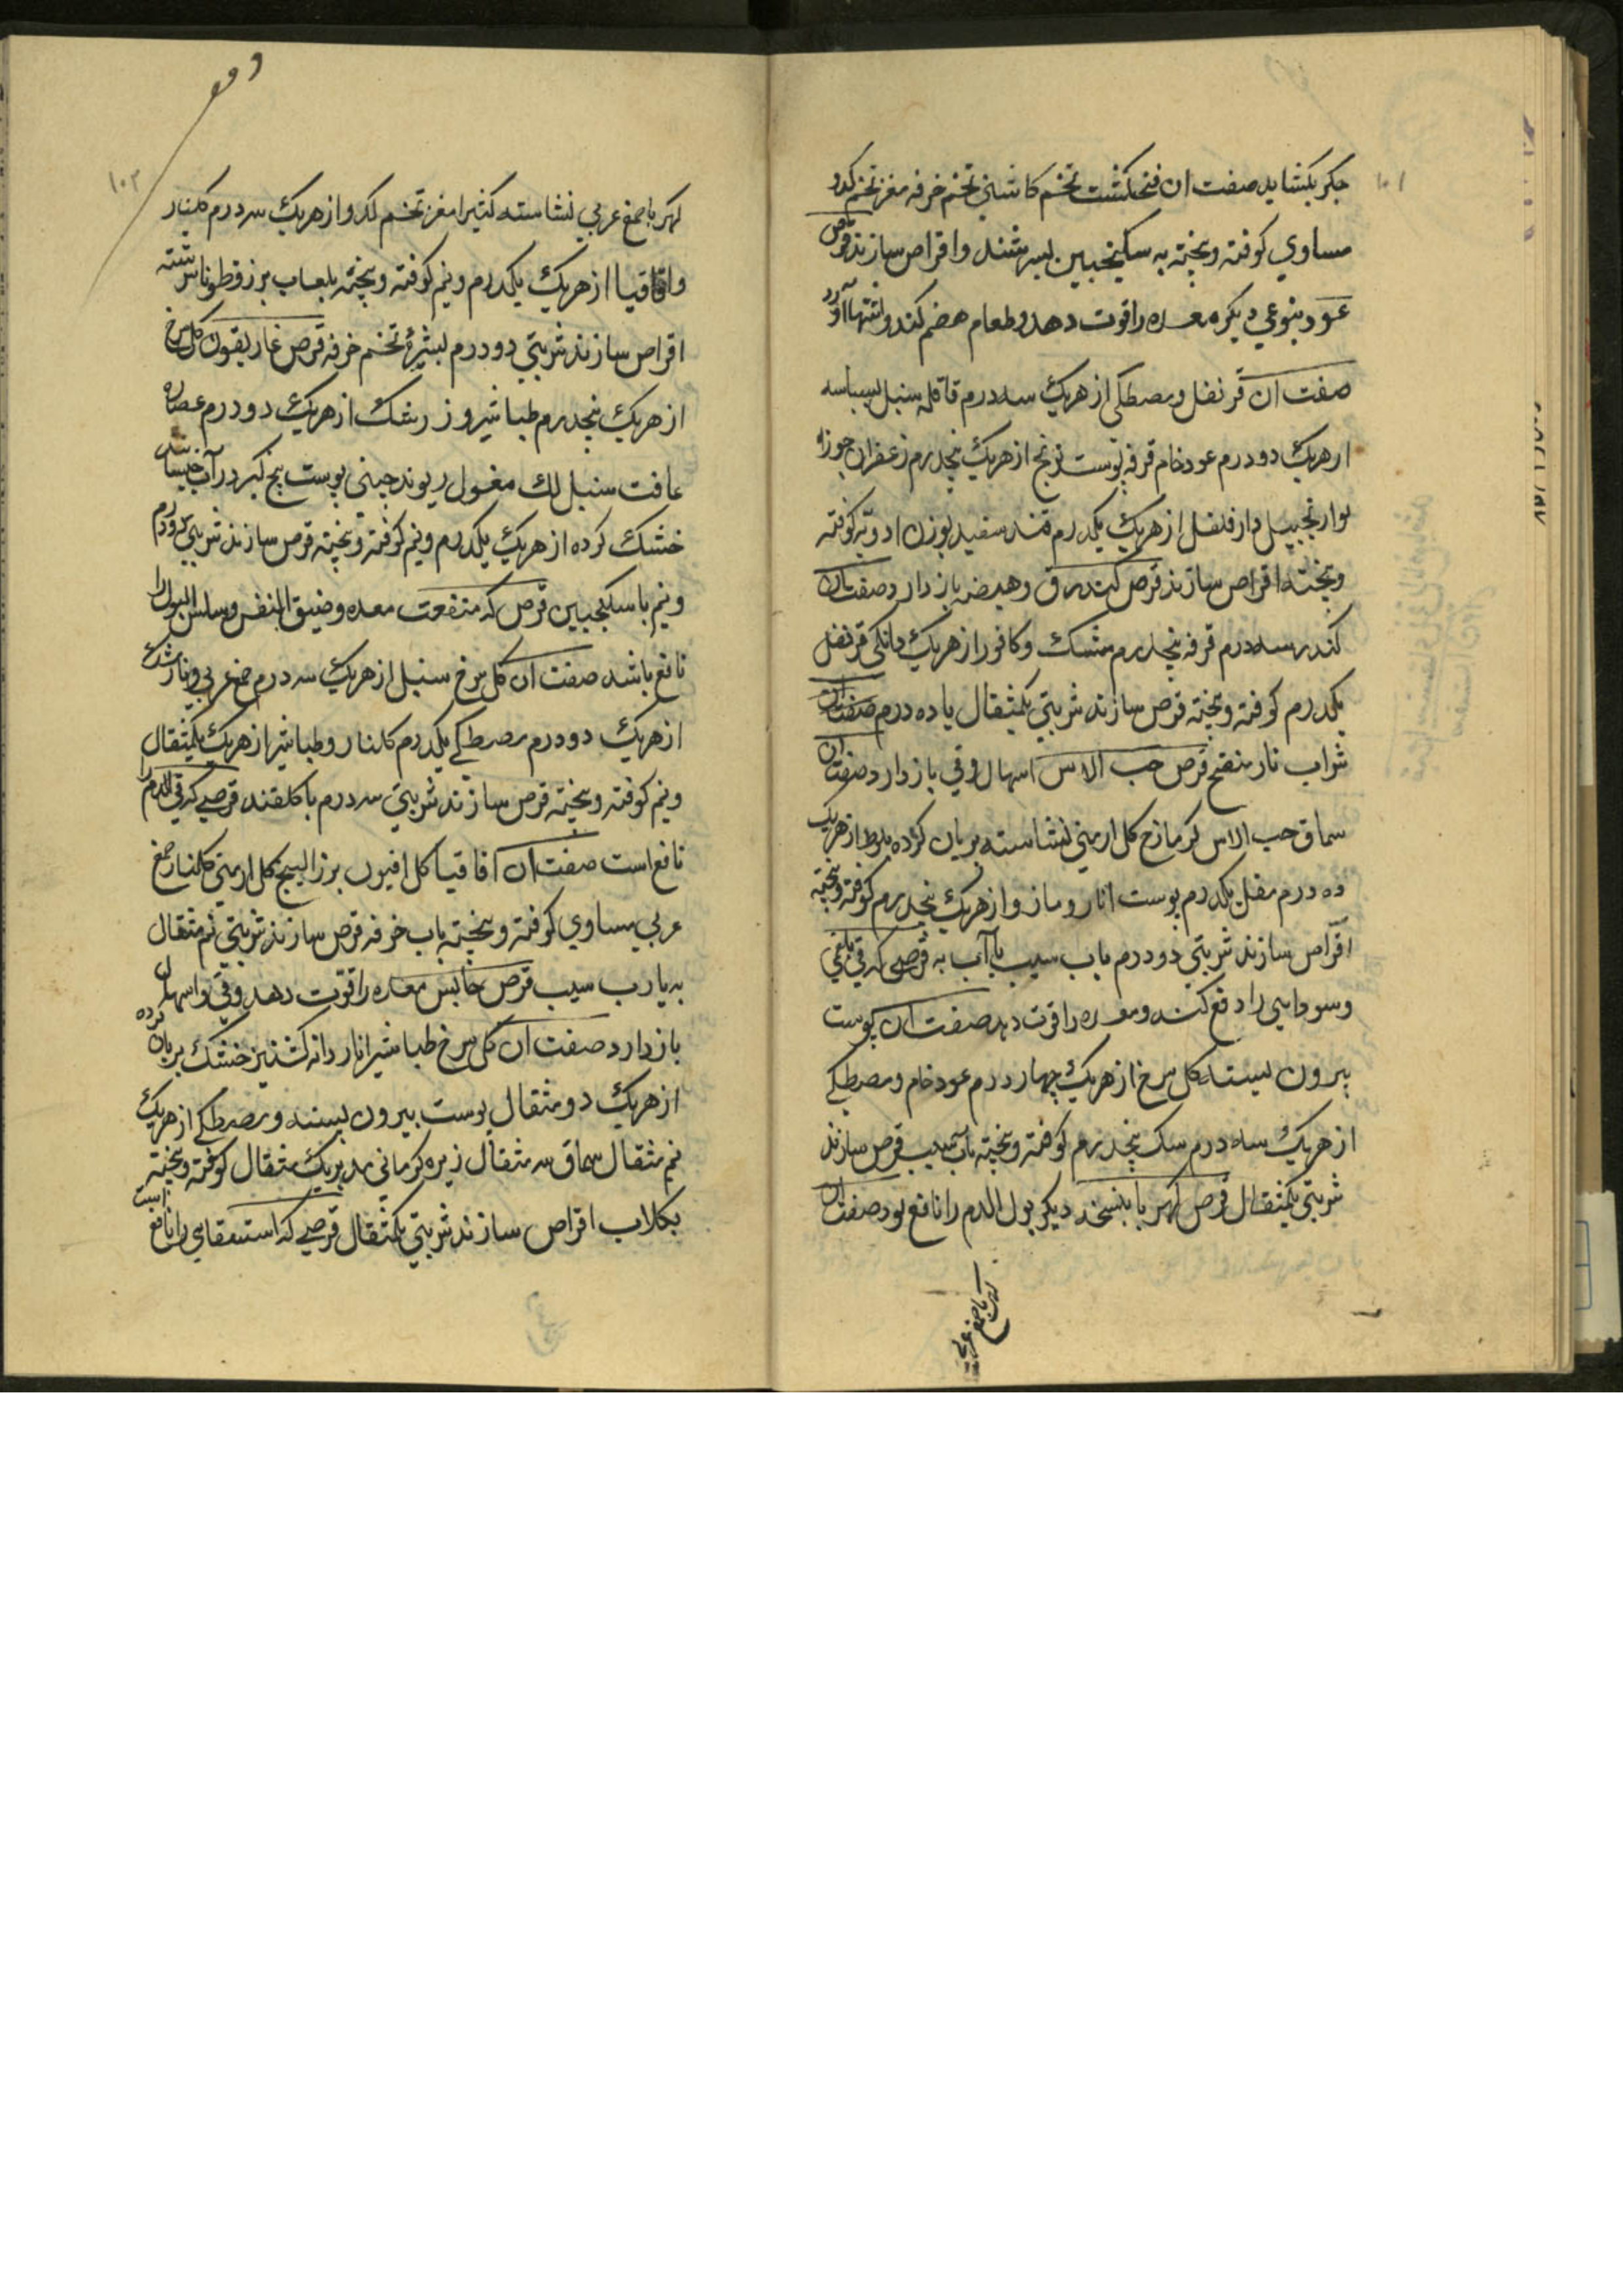 ۱۰۱
جکر بکشاید صفت ان فنجنکشت تخم کاسنی تخم خرفه مغز تخم کدو
مساوي کوفته و بخته به سکنجبین بسرشند و اقراص سازند قرص
عود بنوعي دیکر معده را قوت دهد و طعام هضم کند و اشتها آورد
صفت ان قرنفل و مصطکی از هریک سه درم قاقله سنبل بسباسه
ازهریک دو درم عود خام قرفه پوست ترنج از هریک پنجدرم زعفران جوز
بوا زنجبیل دارفلفل از هریک یکدرم قند سفید بوزن ادویه کوفته
و بخته اقراص سازند قرص کندر ق وهیضه باز دارد صفت ان
کندر سه درم قرفه پنجدرم مشک و کافور از هریک دانکی قرنفل
یکدرم کوفته و بخته قرص سازند شربتي یکمثقال با ده درم صفت ان
شراب نار منقح قرص حب الاس اسهال و قي باز دارد صفت ان
سماق حب الاس کزمازج کل ارمني نشاسته بریان کرده بلوط از هریک
ده درم مقل یکدرم پوست انار و مازو از هریک پنجدرم کوفته و بخته
اقراص سازند شربتي دو درم باب سیب یا آب به قرصی که قي بلغمي
و سودایی را دفع کند و معده را قوت دهد صفت ان پوست
بیرون پسته کل سرخ از هریک چهار درم عود خام و مصطکي
از هریک سه درم سک پنجدرم کوفته و بخته بآب سیب قرص سازند
شربتي یکمثقال قرص کهربا بنسخه دیکر بول الدم را نافع بود صفت ان
کهربا صمغ عربي
۱۰۲
کهربا صمغ عربي نشاسته کتیرا مغز تخم کدو از هریک سه درم کلنار
و اقاقیا از هریک یکدرم و نیم کوفته و بخته بلعاب بزر قطونا سرشته
اقراص سازند شربتي دو درم بشیرۀ تخم خرفه قرص غاریقون کل سرخ
از هریک پنجدرم طباشیر و زرشک از هریک دو درم عصاره
غافت سنبل لک مغسول ریوند چیني پوست بیخ کبر در آب خیسانیده
خشک کرده از هریک یکدرم و نیم کوفته و بخته قرص سازند شربتي دو درم
و نیم با سکنجبین قرص که منفعت معده و ضیق النفس و سلس البول را
نافع باشد صفت ان کل سرخ سنبل از هریک سه درم صمغ عربي و
از هریک دو درم مصطکي یکدرم کلنار و طباشیر از هریک یکمثقال
و نیم کوفته و بخته قرص سازند شربتي سه درم با کلقند قرصي که قي الدم را
نافع است صفت ان اقاقیا کل افیون بزر البنج کل ارمني کلنار صمغ
عربي مساوي کوفته و بخته باب خرفه قرص سازند شربتي نیم مثقال
به یا رب سیب قرص حابس معده را قوت دهد و قي و اسهال
باز دارد صفت ان کل سرخ طباشیر انار دانه کشنیز خشک بریان کرده
از هریک دو مثقال پوست بیرون پسته و مصطکي از هریک
نیم مثقال سماق سه مثقال زیره کرماني مدبر یک مثقال کوفته و بخته
بکلاب اقراص سازند شربتي یکمثقال قرصي که استسقاي را نافع است